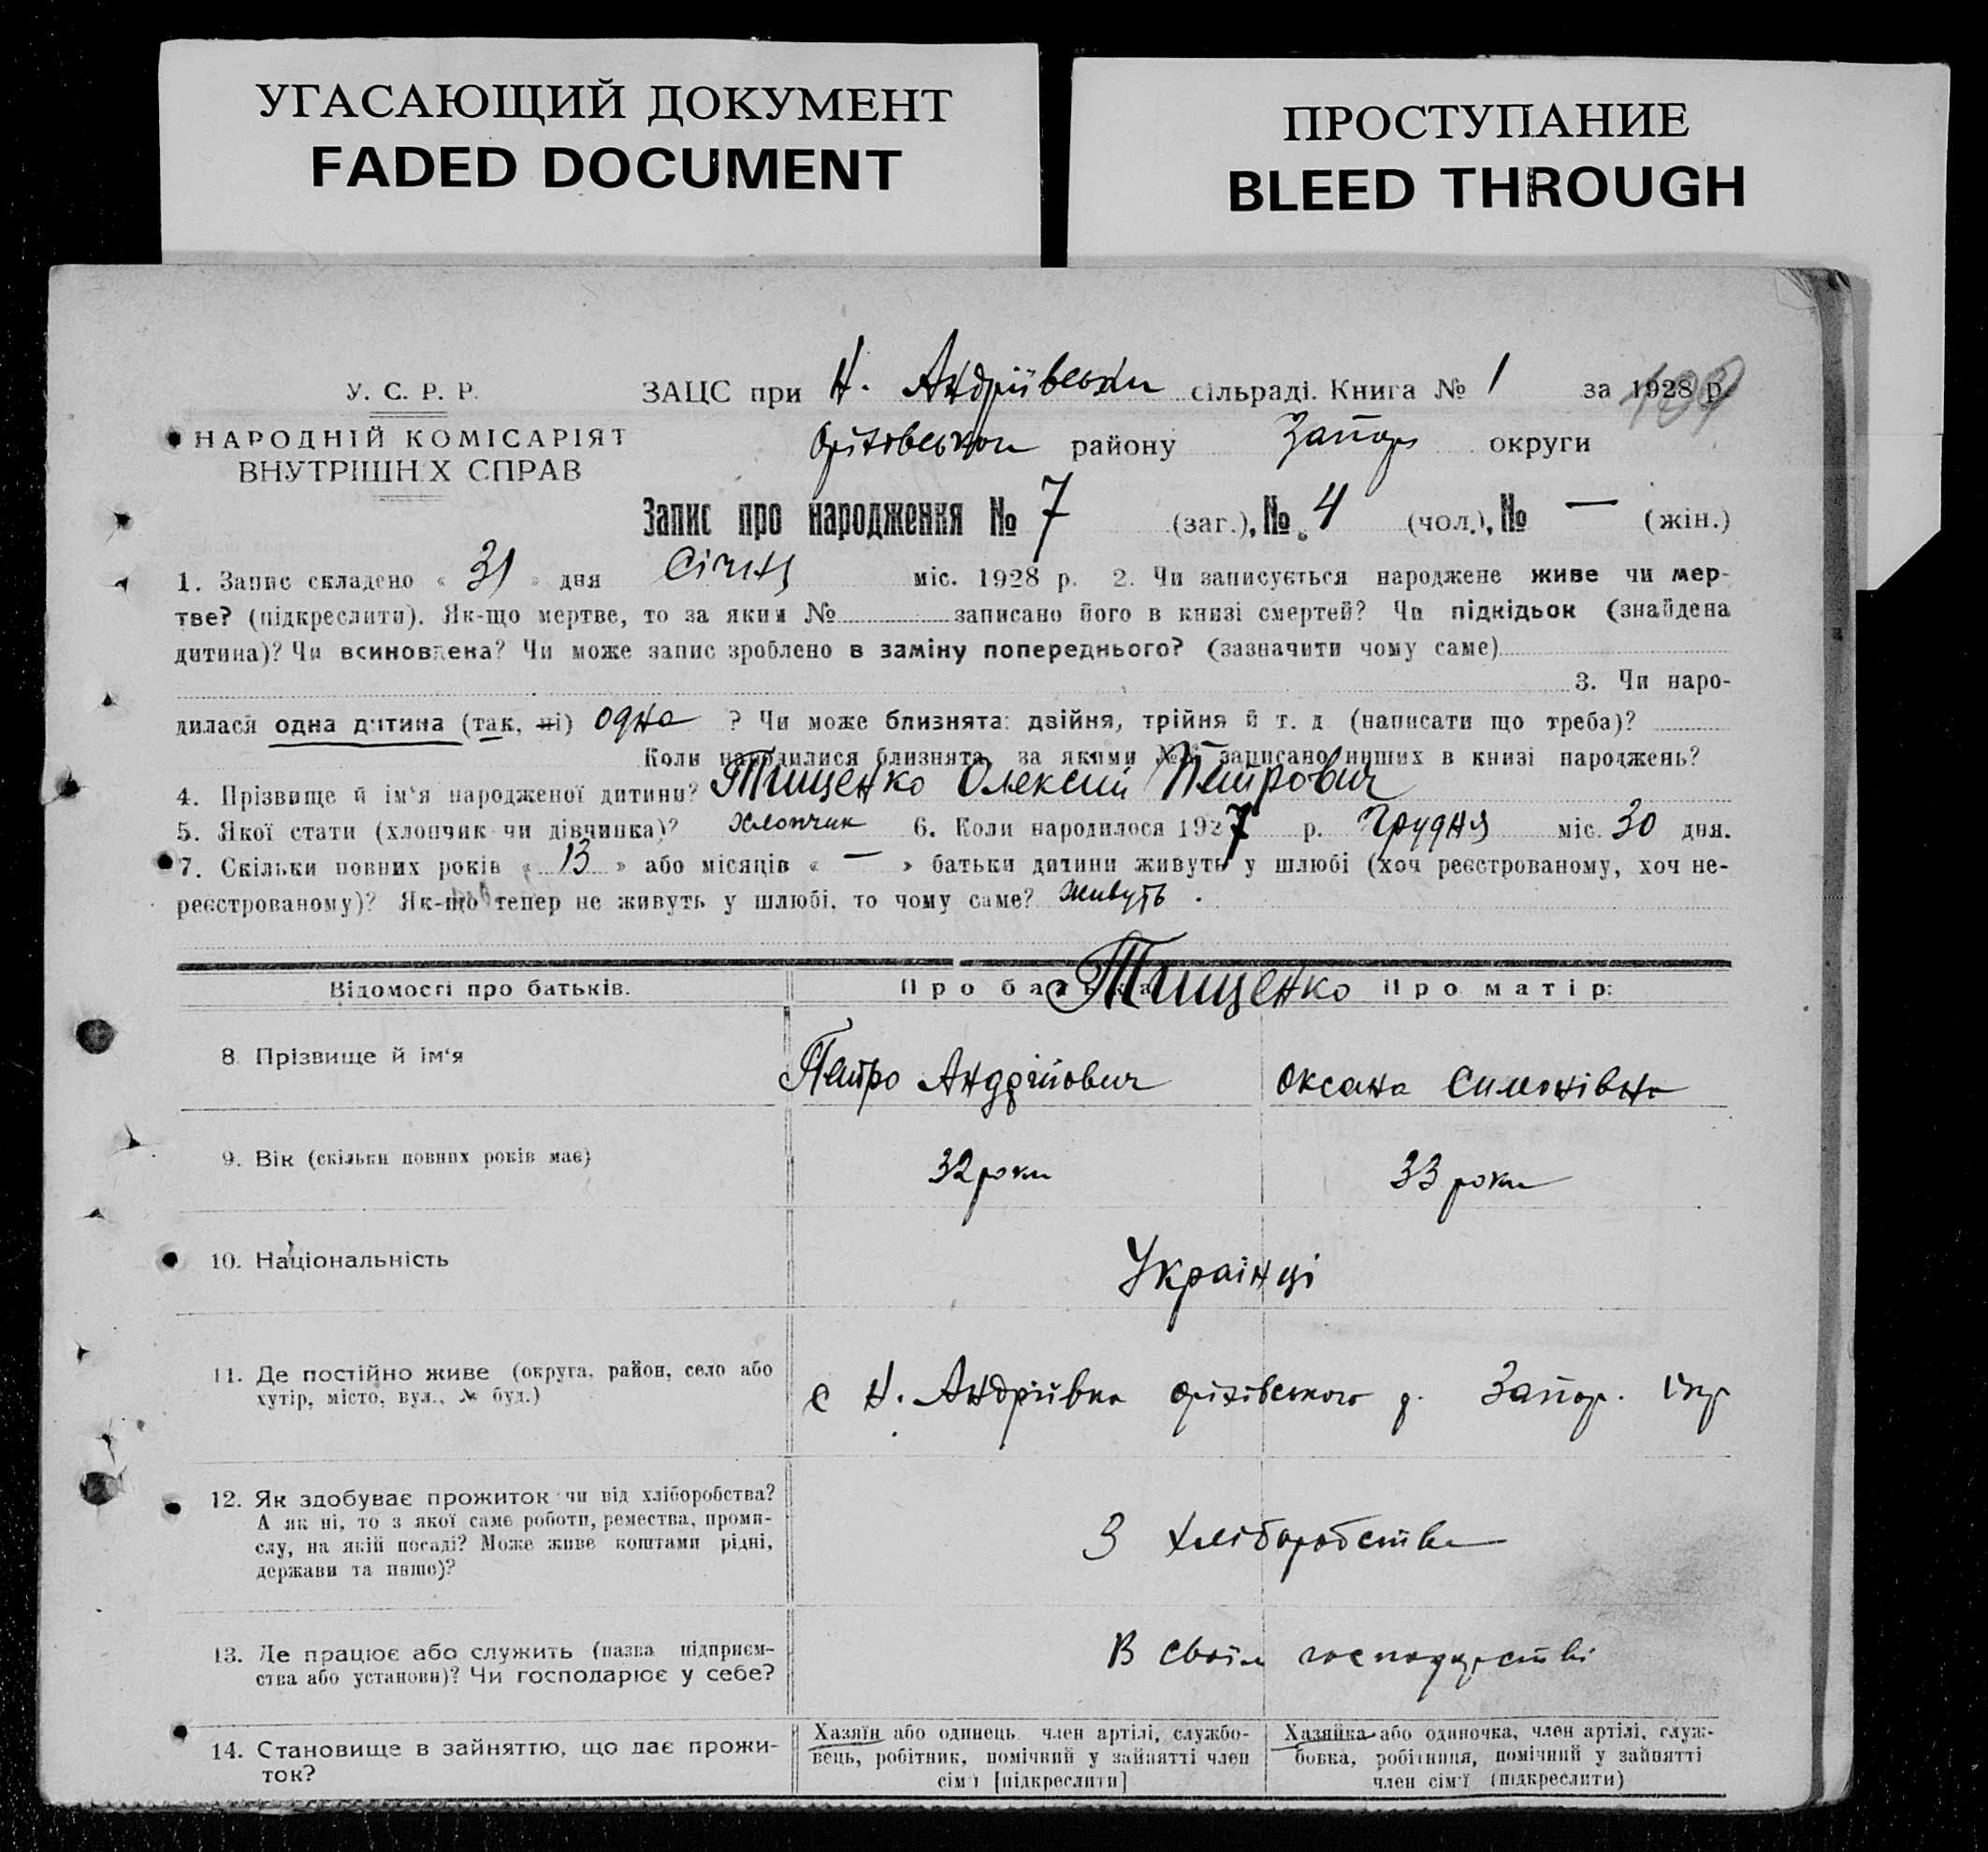 УГАСАЮЩИЙ ДОКУМЕНТ
FADED DOCUMENT
ПРОСТУПАНИЕ
BLEED THROUGH
У. С. Р. Р.
НАРОДНІЙ КОМІСАРІЯТ
ВНУТРІШНІХ СПРАВ
ЗАЦС при Н. Андріївськи сільраді. Книга № 1 за 1928 р.
Оріхівськом району Запор округи
Запис про народження № 7 (заг.), № 4 (чол.), № — (жін.)
1. Запис складено « 31 » дня Січня міс. 1928 р. 2. Чи записується народжене живе чи мер-
тве? (підкреслити). Як-що мертве, то за яким № записано його в книзі смертей? Чи підкідьок (знайдена
дитина)? Чи всиновлена? Чи може запис зроблено в заміну попереднього? (зазначити чому саме)
3. Чи наро-
дилася одна дитина (так, ні) одна ? Чи може близнята: двійня, трійня й т. д. (написати що треба)?
Коли народилися близнята, за якими №№ записано инших в книзі народжень?
4. Прізвище й ім'я народженої дитини? Тищенко Олексій Петрович
5. Якої стати (хлопчик чи дівчинка)? хлопчик 6. Коли народилося 1927 р. Грудня міс. 30 дня.
7. Скільки повних років « 13 » або місяців « — » батьки дитини живуть у шлюбі (хоч реєстрованому, хоч не-
реєстрованому)? Як-що тепер не живуть у шлюбі, то чому саме? живуть .
Відомості про батьків. Про батька Тищенко Про матір:
8. Прізвище й ім'я Петро Андрійович Оксана Симонівна
9. Вік (скільки повних років має) 32 роки 33 роки
10. Національність Українці
11. Де постійно живе (округа, район, село або
хутір, місто, вул., № буд.)
с Н. Андрівка Оріхівського р. Запор. Окр
12. Як здобуває прожиток чи від хліборобства?
А як ні, то з якої саме роботи, ремества, проми-
слу, на якій посаді? Може живе коштами рідні,
держави та инше)?
З хліборобства
13. Де працює або служить (назва підприєм-
ства або установи)? Чи господарює у себе?
В своїм господарстві
14. Становище в зайняттю, що дає прожи-
ток?
Хазяїн або одинець, член артілі, службо-
вець, робітник, помічний у зайнятті член
сім'ї [підкреслити]
Хазяйка або одиночка, член артілі, служ-
бовка, робітниця, помічний у зайнятті
член сім'ї (підкреслити)